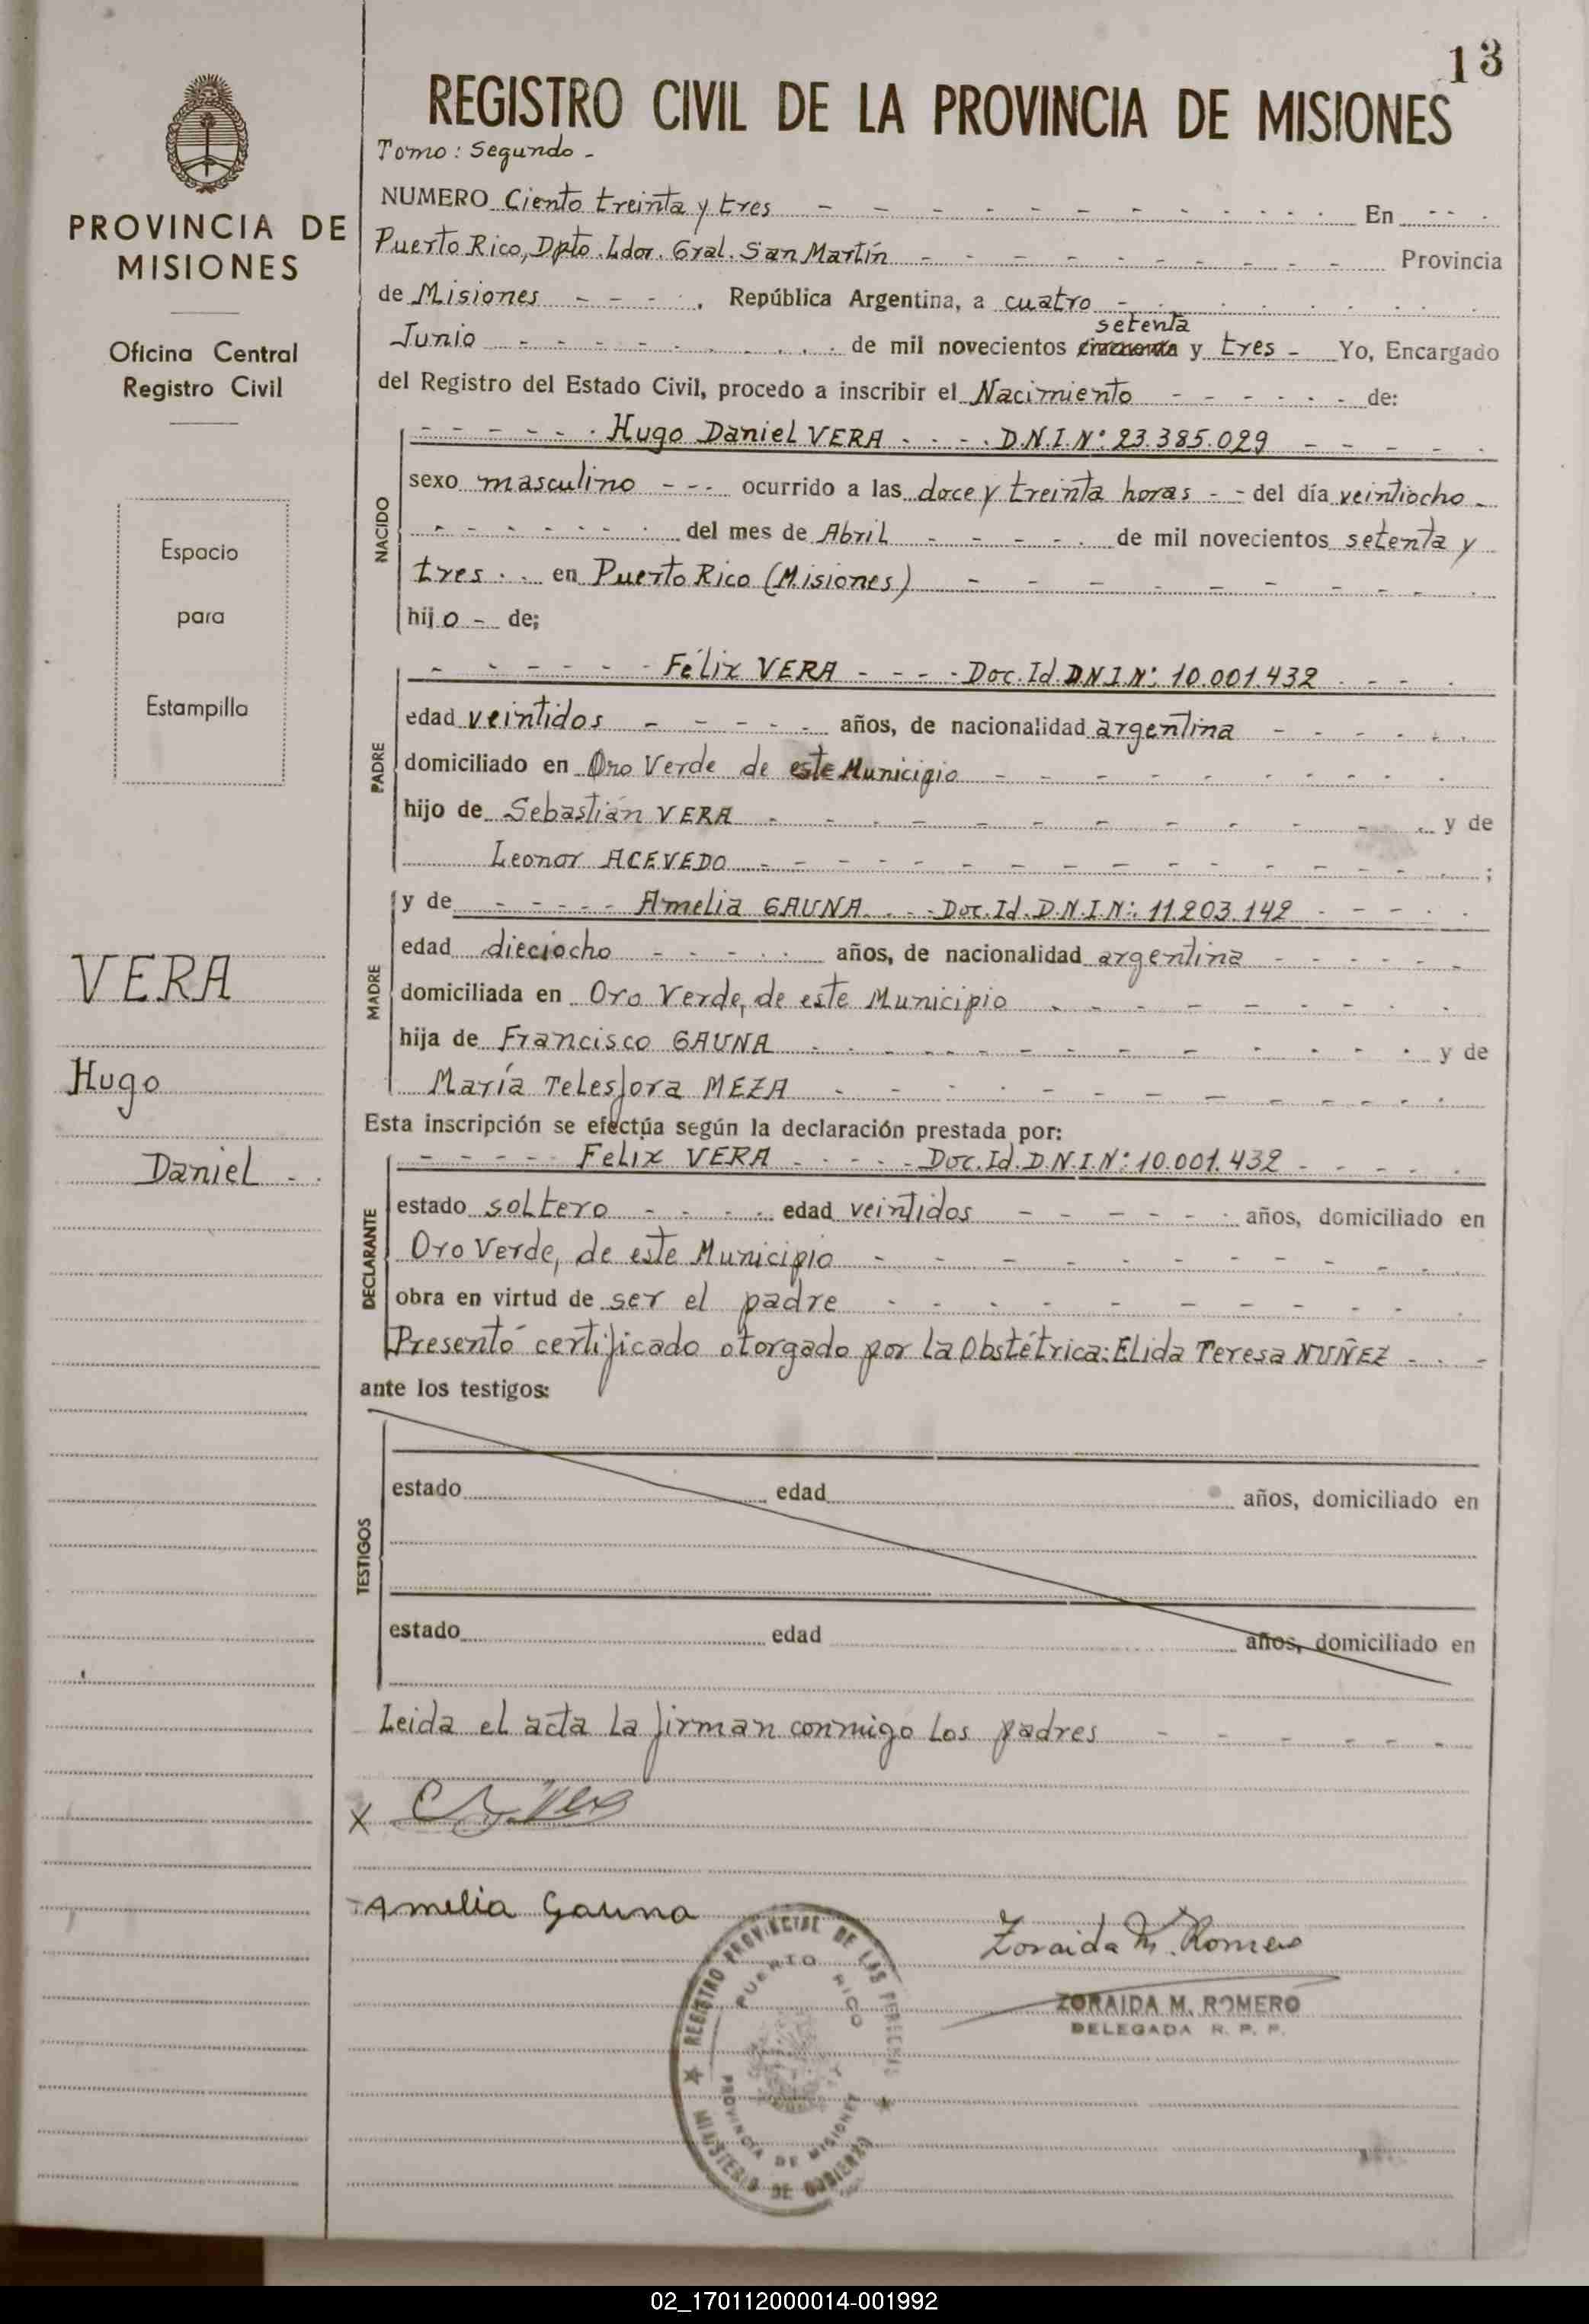 13
REGISTRO CIVIL DE LA PROVINCIA DE MISIONES
Tomo: Segundo -
PROVINCIA DE
MISIONES
Oficina Central
Registro Civil
Espacio
para
Estampilla
VERA
Hugo
Daniel
NUMERO Ciento treinta y tres En
Puerto Rico, Dpto. Ldor. Gral. San Martín Provincia
de Misiones, República Argentina, a cuatro
setenta
Junio de mil novecientos cincuenta y tres - Yo, Encargado
del Registro del Estado Civil, procedo a inscribir el Nacimiento de:
NACIDO
Hugo Daniel VERA D.N.I.Nº 23.385.029
sexo masculino ocurrido a las doce y treinta horas del día veintiocho
del mes de Abril de mil novecientos setenta y
tres en Puerto Rico (Misiones)
hijo de;
PADRE
Félix VERA Doc. Id. D.N.I.Nº: 10.001.432
edad veintidos años, de nacionalidad argentina
domiciliado en Oro Verde de este Municipio
hijo de Sebastián VERA y de
Leonor ACEVEDO ;
MADRE
y de Amelia GAUNA Doc. Id. D.N.I.Nº: 11.203.142
edad dieciocho años, de nacionalidad argentina
domiciliada en Oro Verde, de este Municipio
hija de Francisco GAUNA y de
María Telesfora MEZA
Esta inscripción se efectúa según la declaración prestada por:
DECLARANTE
Felix VERA Doc. Id. D.N.I.Nº: 10.001.432
estado soltero edad veintidos años, domiciliado en
Oro Verde, de este Municipio
obra en virtud de ser el padre
Presentó certificado otorgado por la Obstétrica: Elida Teresa NUÑEZ
ante los testigos:
TESTIGOS
estado edad años, domiciliado en
estado edad años, domiciliado en
Leida el acta la firman conmigo los padres
X
Amelia Gauna
Zoraida M. Romero
ZORAIDA M. ROMERO
DELEGADA R. P. P.
REGISTRO PROVINCIAL DE LAS PERSONAS
PUERTO RICO
PROVINCIA DE MISIONES
MINISTERIO DE GOBIERNO
02_170112000014-001992